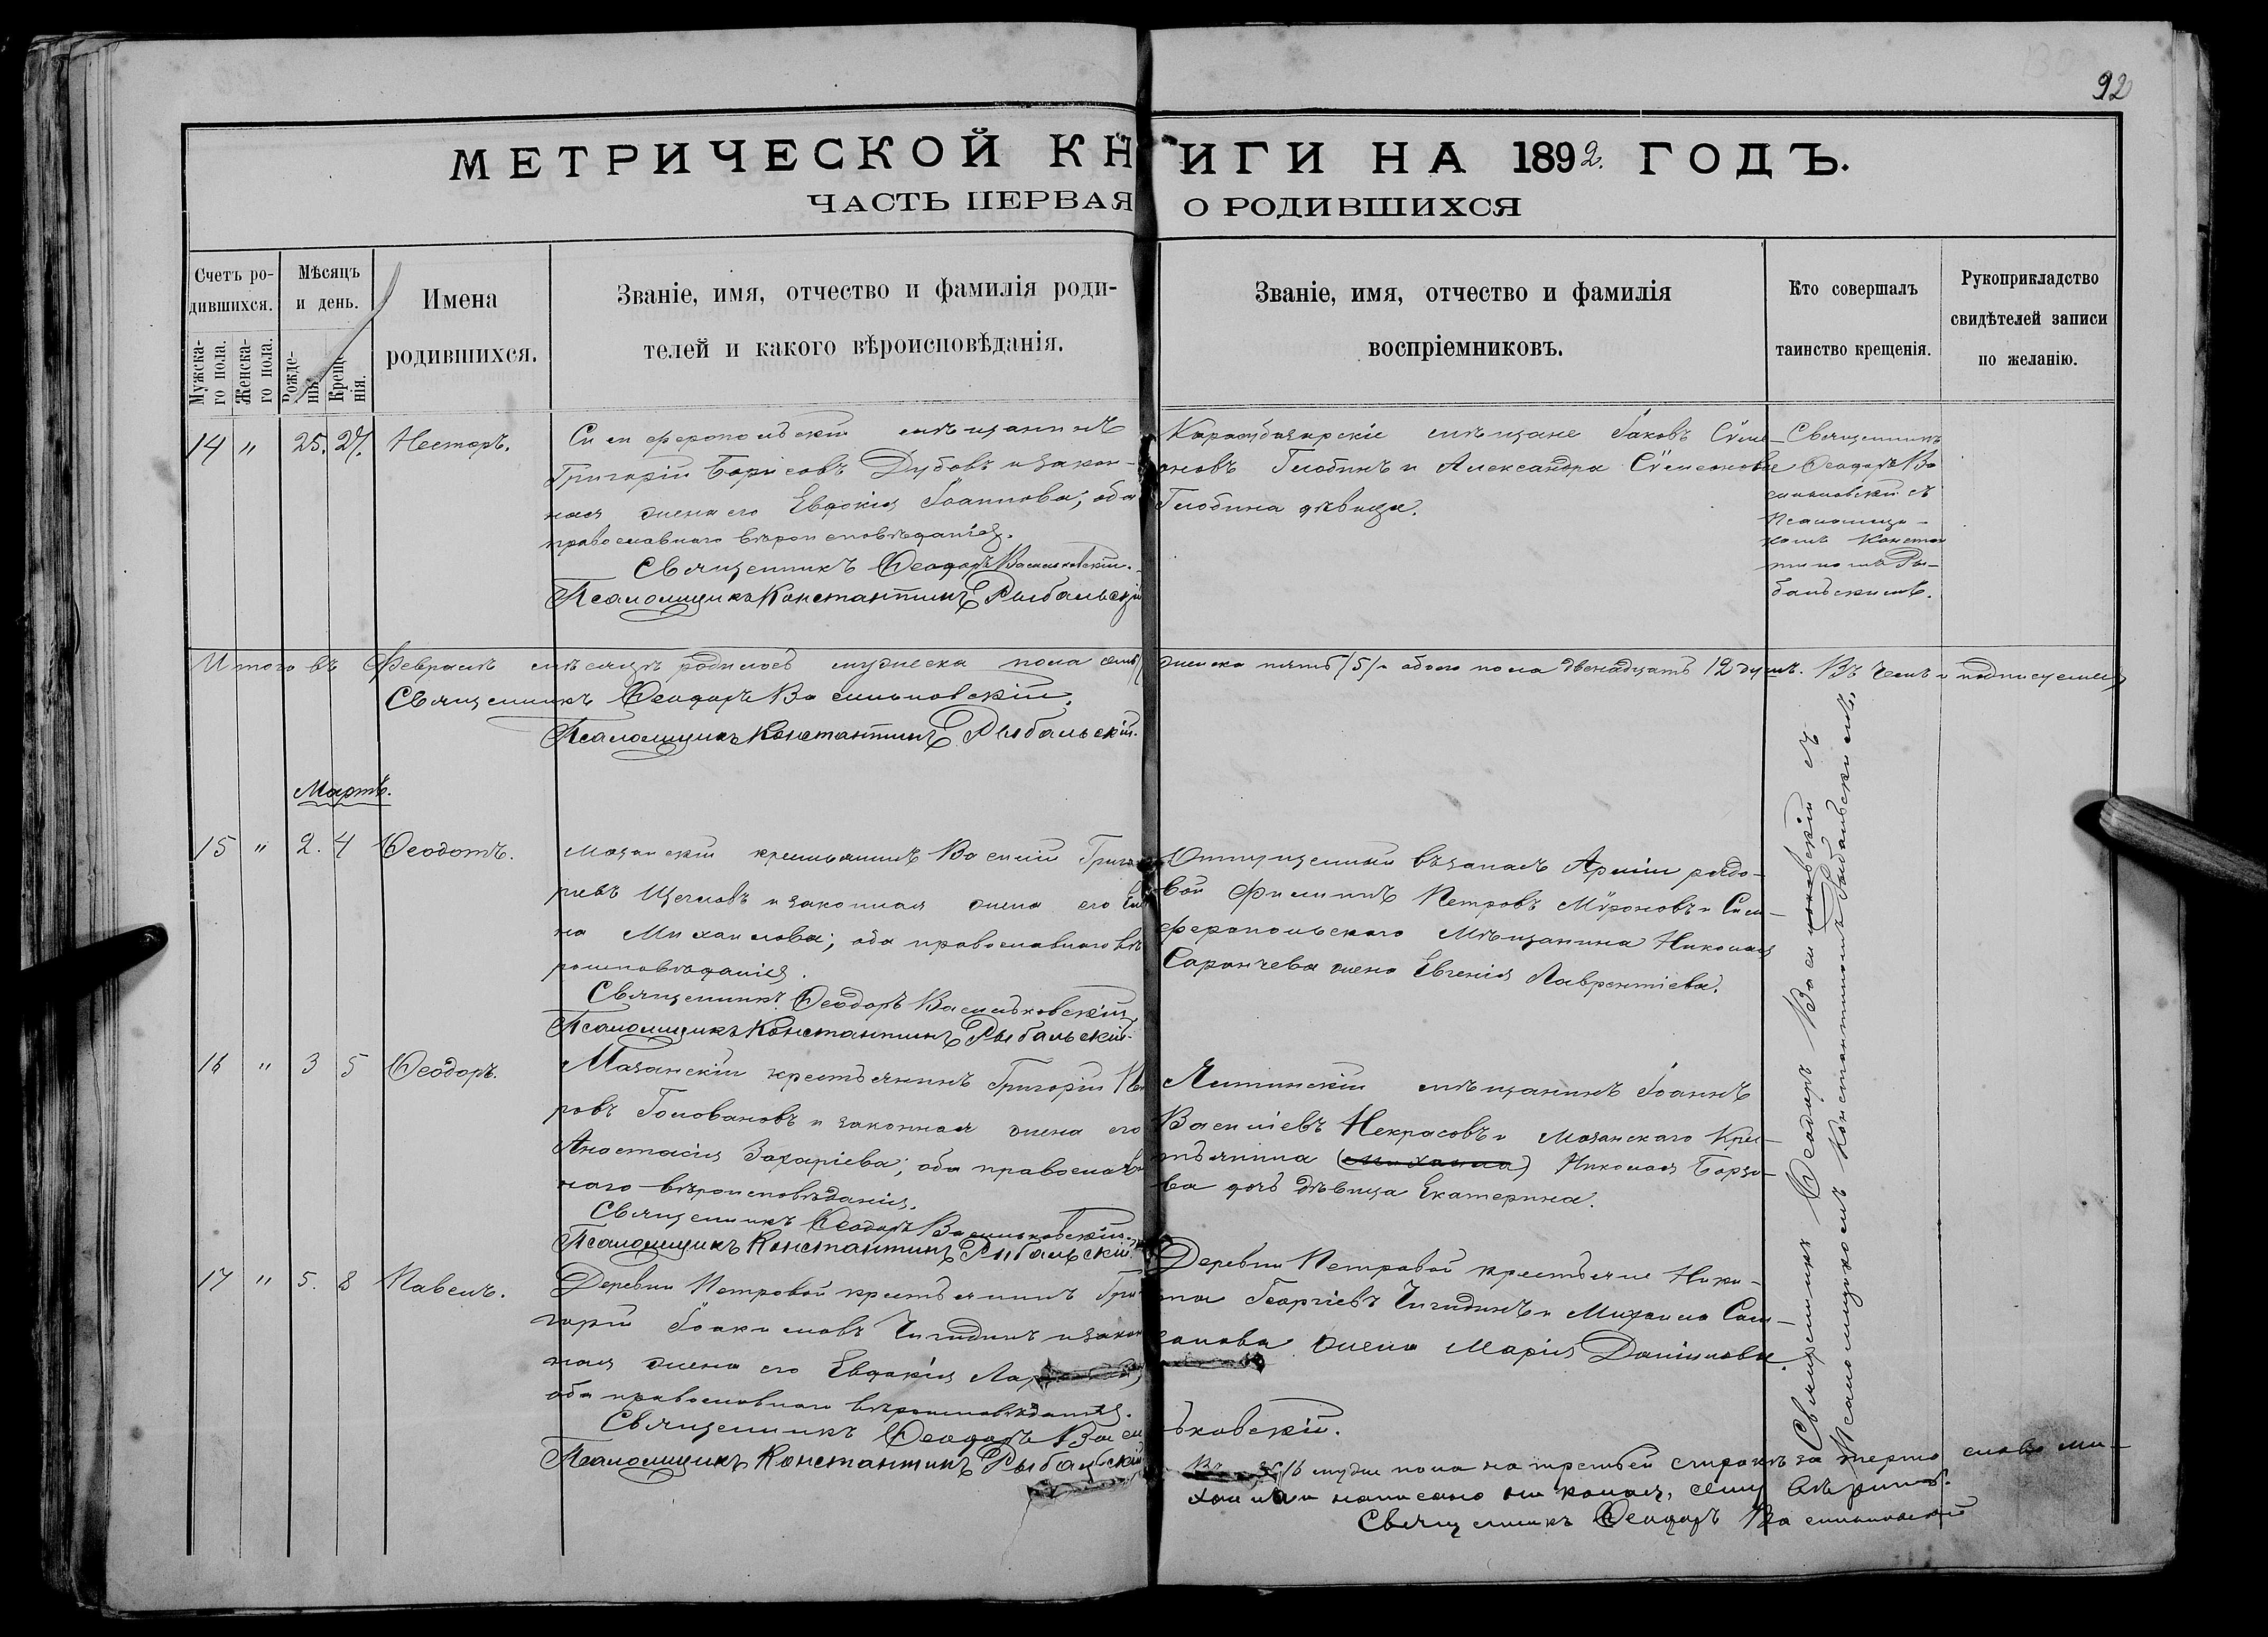 92
МЕТРИЧЕСКОЙ КНИГИ НА 1892. ГОДЪ.
ЧАСТЬ ПЕРВАЯ О РОДИВШИХСЯ
Счетъ ро-
дившихся.
Мужска-
го пола.
Женска-
го пола.
Мѣсяцъ
и день.
Рожде-
нія.
Креще-
нія.
Имена
родившихся.
Званіе, имя, отчество и фамилія роди-
телей и какого вѣроисповѣданія.
Званіе, имя, отчество и фамилія
воспріемниковъ.
Кто совершалъ
таинство крещенія.
Рукоприкладство
свидѣтелей записи
по желанію.
14 " 25. 27. Несторъ.
Симферопольскій мѣщанинъ
Григорій Борисовъ Дубовъ и закон-
ная жена его Евдокія Іоаннова; оба
православнаго вѣроисповѣданія.
Священникъ Ѳеодоръ Васильковскій.
Псаломщикъ Константинъ Рыбальскій
Карасубазарскіе мѣщане Іаковъ Сѵме-
оновъ Глобинъ и Александра Сѵмеонова
Глобина дѣвица.
Священникъ
Ѳеодоръ Ва
сильковскій съ
Псаломщи-
комъ Констан
тиномъ Ры-
бальскимъ.
Итого въ Февралѣ мѣсяцѣ родилось мужеска пола семь женска пять /5/ и обоего пола двенадцать 12 душъ. Въ чемъ и подписуемся
Священникъ Ѳеодоръ Васильковскій.
Псаломщикъ Константинъ Рыбальскій.
Мартъ.
15 " 2. 4 Ѳеодотъ.
Мазанскій крестьянинъ Василій Григо
рьевъ Щегловъ и законная жена его
на Михаилова; оба православнаго вѣ
роисповѣданія.
Священникъ Ѳеодоръ Васильковскій
Псаломщикъ Константинъ Рыбальскій.
Отпущенный въ запасъ Арміи рядо-
вой Филиппъ Петровъ Мѵроновъ и Сим-
феропольскаго Мѣщанина Николая
Саранчева жена Евгенія Лаврентіева.
16 " 3 5 Ѳеодоръ.
Мазанскій крестьянинъ Григорій Пет
ровъ Головановъ и законная жена его
Анастасія Захаріева; оба православ
наго вѣроисповѣданія.
Священникъ Ѳеодоръ Васильковскій.
Псаломщикъ Константинъ Рыбальскій.
Ялтинскій мѣщанинъ Іоаннъ
Василіевъ Некрасовъ и Мазанскаго Крес-
тьянина (Михаила) Николая Борзо-
ва дочь дѣвица Екатерина.
17 " 5. 8 Павелъ.
Деревни Петровой крестьянинъ Гри
горій Іоакимовъ Чигидинъ и закон
ная жена его Евдокія
оба православнаго вѣроисповѣданія.
Священникъ Ѳеодоръ Васильковскій.
Псаломщикъ Константинъ Рыбальскій
Деревни Петровой крестьяне Ники-
та Георгіевъ Чигидинъ и Михаила Сам-
сонова жена Марія Даніилова.
Священникъ Ѳеодоръ Васильковскій съ
Псаломщикомъ Константиномъ Рыбальскимъ.
16 мужс пола на третьей строкѣ зачертно слово Ми-
хаила и написано Николая, сему вѣрить.
Священникъ Ѳеодоръ Васильковскій